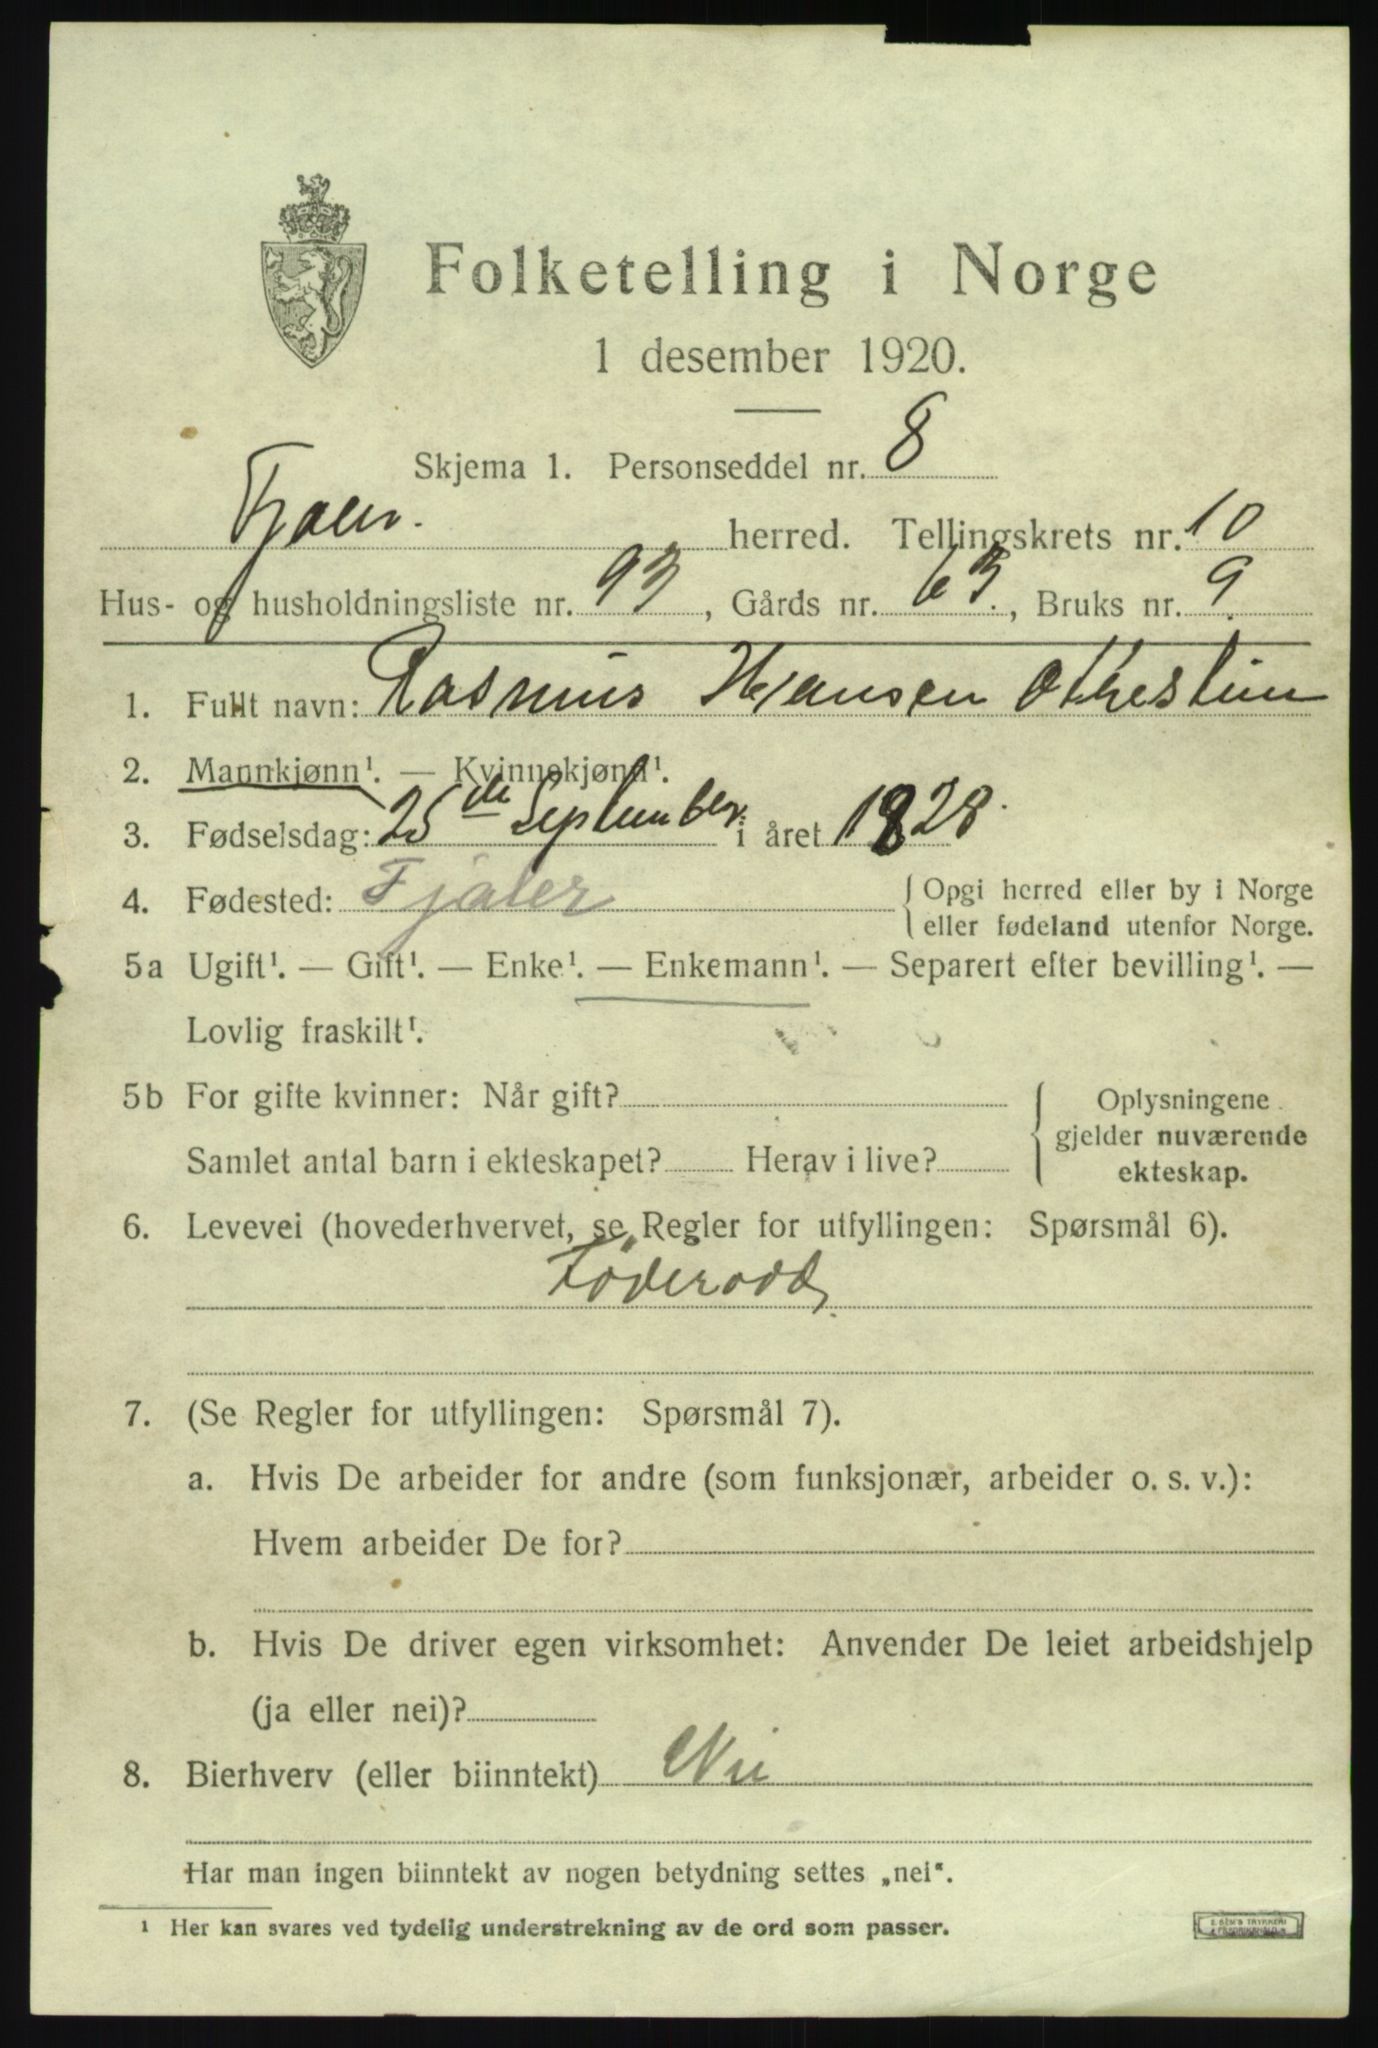 Folketelling i Norge
1 desember 1920.
Skjema 1. Personseddel nr. 8
Fjaler. herred. Tellingskrets nr. 10
Hus- og husholdningsliste nr. 93, Gårds nr. 63, Bruks nr. 9
1. Fullt navn: Rasmus Hansen
2. Mannkjønn¹. — Kvinnekjønn¹.
3. Fødselsdag: 25de September i året 1828.
4. Fødested: Fjaler { Opgi herred eller by i Norge
eller fødeland utenfor Norge.
5a Ugift¹. — Gift¹. — Enke¹. — Enkemann¹. — Separert efter bevilling¹. —
Lovlig fraskilt¹.
5b For gifte kvinner: Når gift?
Samlet antal barn i ekteskapet? Herav i live?
{ Oplysningene
gjelder nuværende
ekteskap.
6. Levevei (hovederhvervet, se Regler for utfyllingen: Spørsmål 6).
Føderådd
7. (Se Regler for utfyllingen: Spørsmål 7).
a. Hvis De arbeider for andre (som funksjonær, arbeider o. s. v.):
Hvem arbeider De for?
b. Hvis De driver egen virksomhet: Anvender De leiet arbeidshjelp
(ja eller nei)?
8. Bierhverv (eller biinntekt) Nei
Har man ingen biinntekt av nogen betydning settes „nei“.
¹ Her kan svares ved tydelig understrekning av de ord som passer.